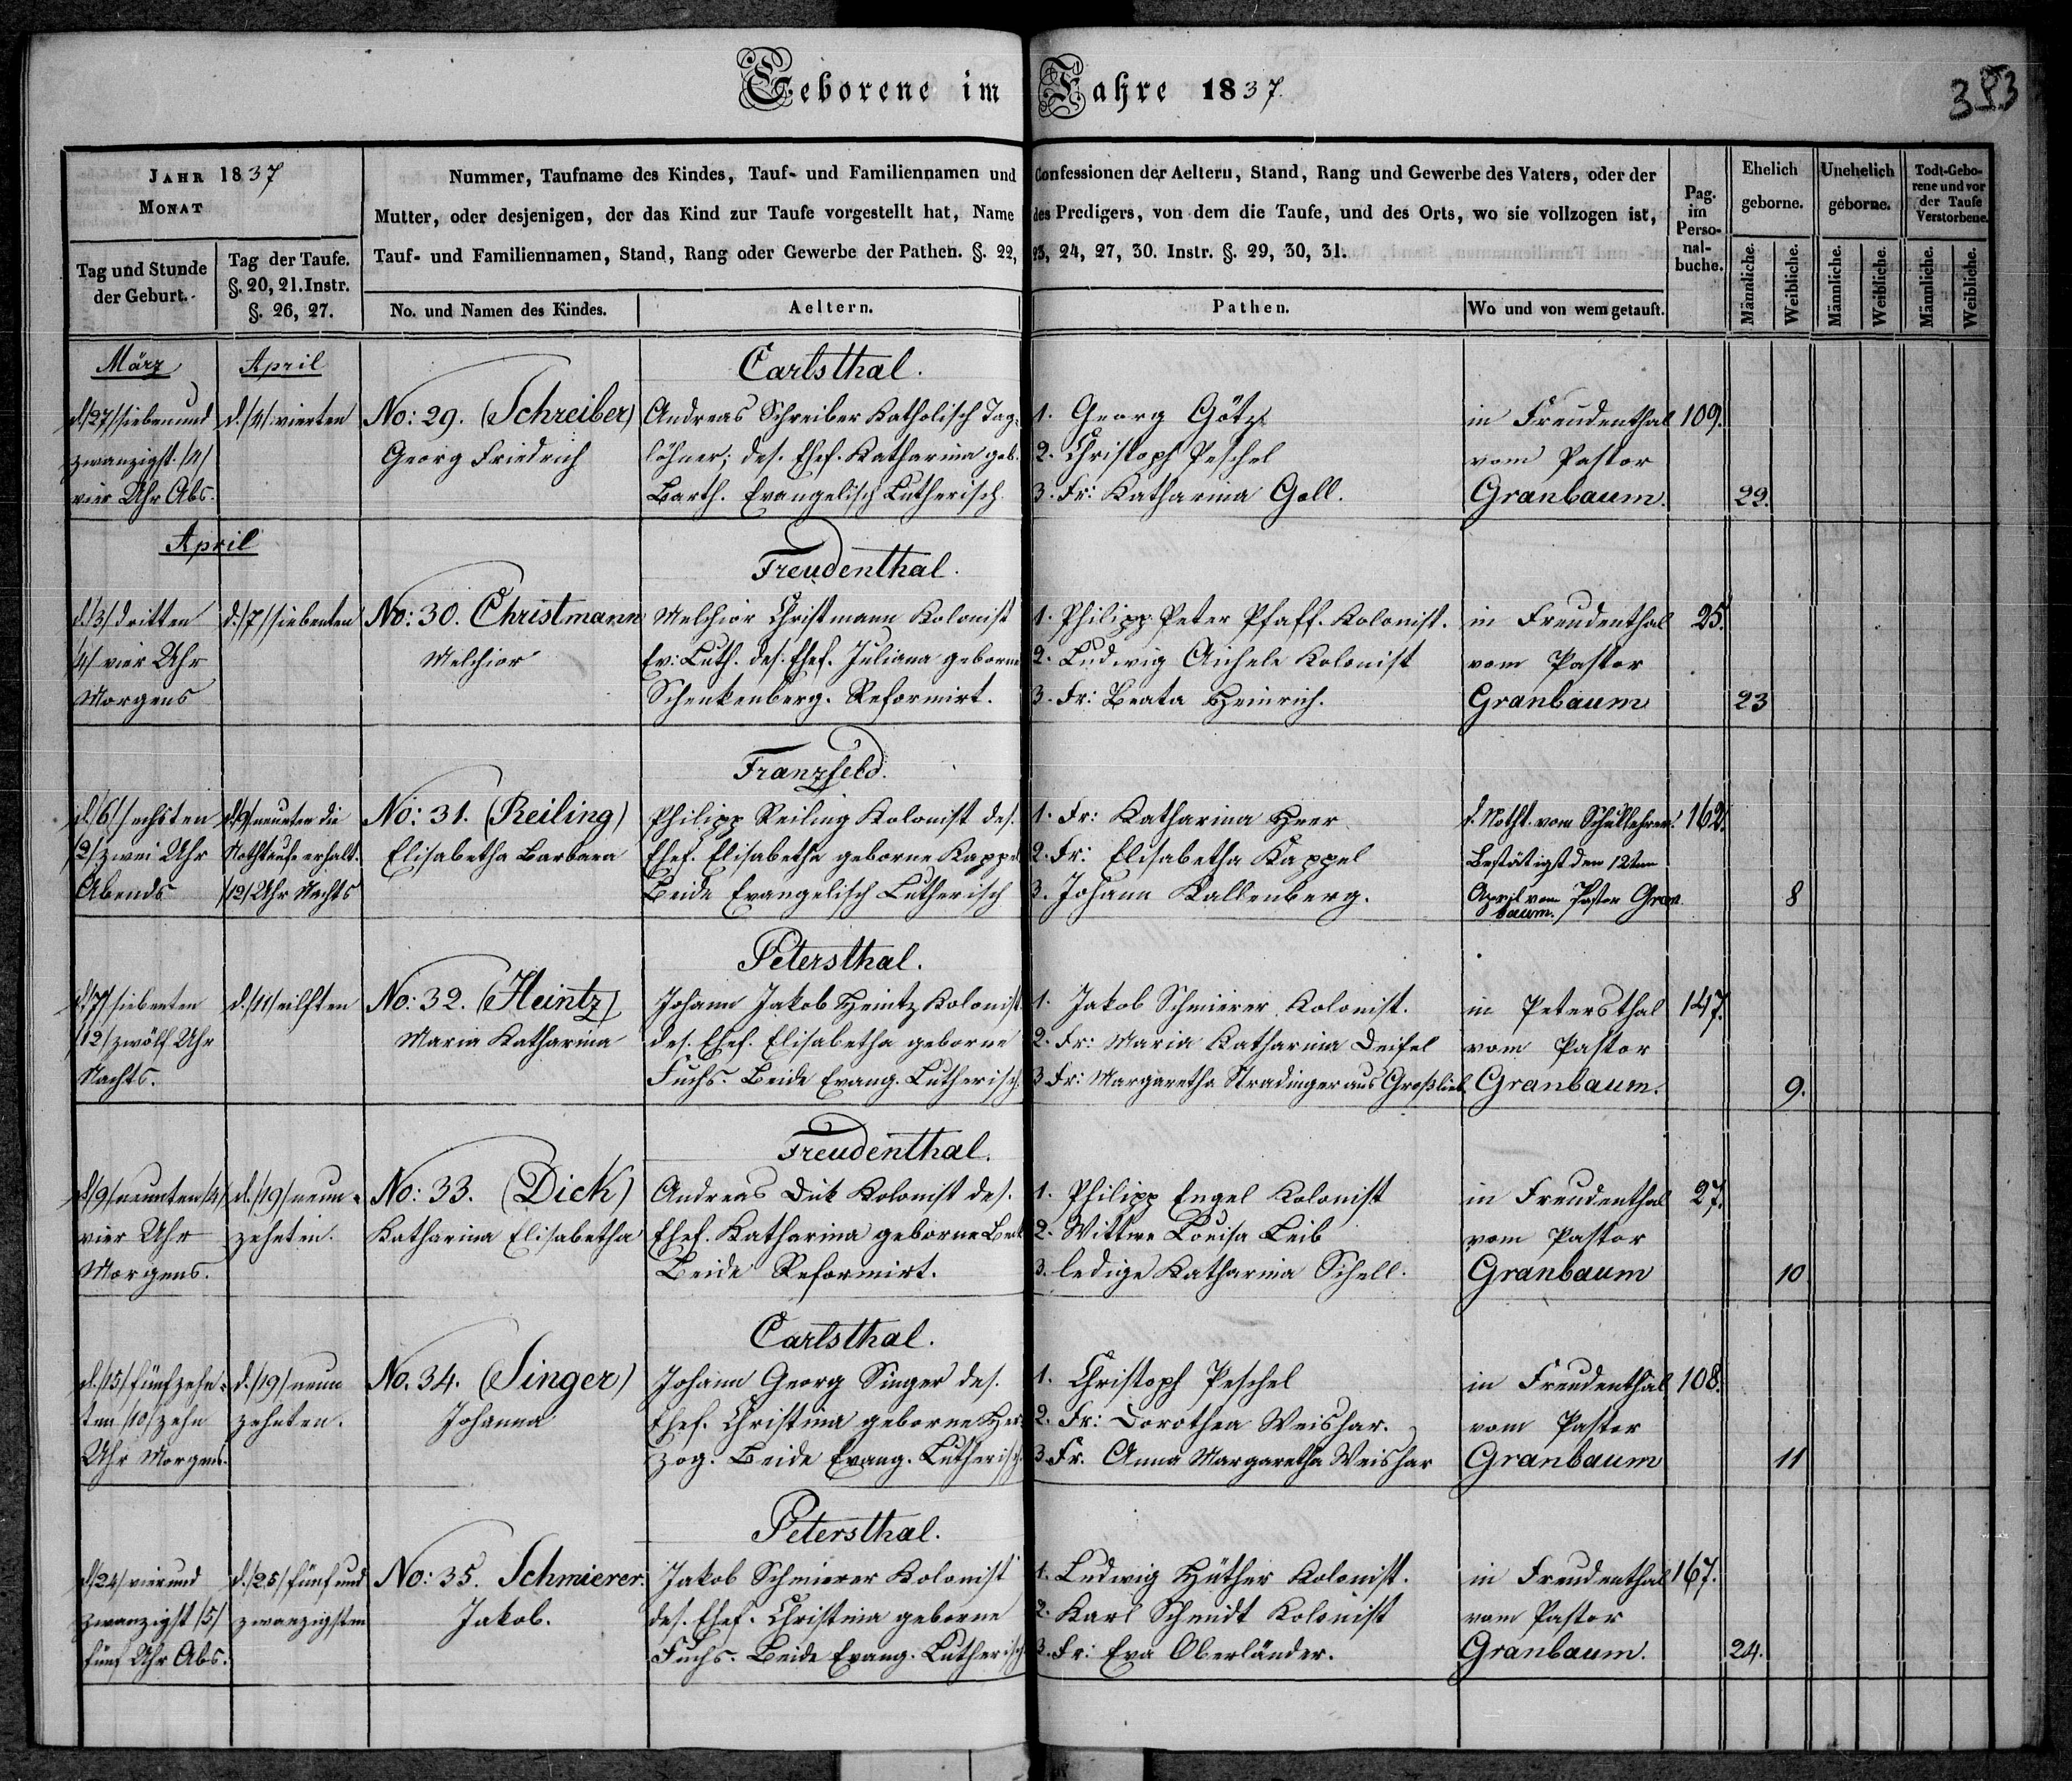 Geborene im Jahre 1837.
383
JAHR 1837
MONAT
Tag und Stunde der Geburt.
Tag der Taufe. §. 20, 21. Instr. §. 26, 27.
Nummer, Taufname des Kindes, Tauf- und Familiennamen und Confessionen der Aeltern, Stand, Rang und Gewerbe des Vaters, oder der
Mutter, oder desjenigen, der das Kind zur Taufe vorgestellt hat, Name des Predigers, von dem die Taufe, und des Orts, wo sie vollzogen ist,
Tauf- und Familiennamen, Stand, Rang oder Gewerbe der Pathen. §. 22, 23, 24, 27, 30. Instr. §. 29, 30, 31.
No. und Namen des Kindes.
Aeltern.
Pathen.
Wo und von wem getauft.
Pag. im Perso-nal-buche.
Ehelich geborne.
Unehelich geborne.
Todt-Gebo-rene und vor der Taufe Verstorbene.
Männliche. Weibliche. Männliche. Weibliche. Männliche. Weibliche.
März
April
Carlsthal.
d. /27/ siebenund
zwanzigst. /4/
vier Uhr Abs.
d. /4/ vierten
No: 29. (Schreiber)
Georg Friedrich
Andreas Schreiber Katholisch Tag-
löhner; des. Ehef. Katharina geb.
Barth. Evangelisch Lutherisch.
1. Georg Götz
2. Christoph Peschel
3. Fr: Katharina Goll.
in Freudenthal
vom Pastor
Granbaum.
109.
22.
April
Freudenthal.
d. /3/ dritten
/4/ vier Uhr
Morgens
d. /7/ siebenten
No: 30. Christmann
Melchior
Melchior Christmann Kolonist
Ev: Luth. des. Ehef. Juliana geborne
Schenkenberg. Reformirt.
1. Philipp Peter Pfaff. Kolonist.
2. Ludwig Aichele Kolonist
3. Fr: Beata Heinrich.
in Freudenthal
vom Pastor
Granbaum
25.
23
Franzfeld.
d. /6/ sechsten
/2/ zwei Uhr
Abends
d. /9/ neunten die
Nothtaufe erhalt.
/12/ Uhr Nachts
No: 31. (Reiling)
Elisabetha Barbara
Philipp Reiling Kolonist des.
Ehef. Elisabetha geborne Kappel
Beide Evangelisch Lutherisch
1. Fr: Katharina Heer
2. Fr: Elisabetha Kappel
3. Johann Kallenberg.
d. Notht. vom Schullehrer.
Bestätigt den 12ten
April vom Pastor Gran
baum.
162.
8
Petersthal.
d. /7/ siebenten
/12/ zwölf Uhr
Nachts.
d. /11/ eilften
No: 32. (Heintz)
Maria Katharina
Johann Jakob Heintz Kolonist
des. Ehef. Elisabetha geborne
Fuchs. Beide Evang. Lutherisch.
1. Jakob Schmierer Kolonist.
2. Fr: Maria Katharina Deifel
3 Fr: Margaretha Stradinger aus Großlieb.
in Petersthal
vom Pastor
Granbaum.
147.
9.
Freudenthal.
d. /9/ neunten /4/
vier Uhr
Morgens.
d. /19/ neun-
zehnten.
No: 33. (Dick)
Katharina Elisabetha
Andreas Dick Kolonist des.
Ehef. Katharina geborne
Beide Reformirt.
1. Philipp Engel Kolonist
2. Wittwe Louisa Leib
3. ledige Katharina Schell.
in Freudenthal
vom Pastor
Granbaum
27.
10
Carlsthal.
d. /15/ fünfzehn-
ten /10/ zehn
Uhr Morgens.
d. /19/ neun
zehnten.
No. 34. (Singer)
Johanna
Johann Georg Singer des.
Ehef. Christina geborne Her-
zog. Beide Evang. Lutherisch.
1. Christoph Peschel
2. Fr: Dorothea Weishar.
3. Fr. Anna Margaretha Weishar
in Freudenthal
vom Pastor
Granbaum
108.
11
Petersthal.
d. /24/ vierund
zwanzigst /5/
fünf Uhr Abs.
d. /25/ fünf und
zwanzigsten
No: 35. Schmierer.
Jakob.
Jakob Schmierer Kolonist
des. Ehef. Christina geborne
Fuchs. Beide Evang. Lutherisch.
1. Ludwig Hüther Kolonist.
2. Karl Schmidt Kolonist
3. Fr: Eva Oberländer.
in Freudenthal
vom Pastor
Granbaum.
167.
24.